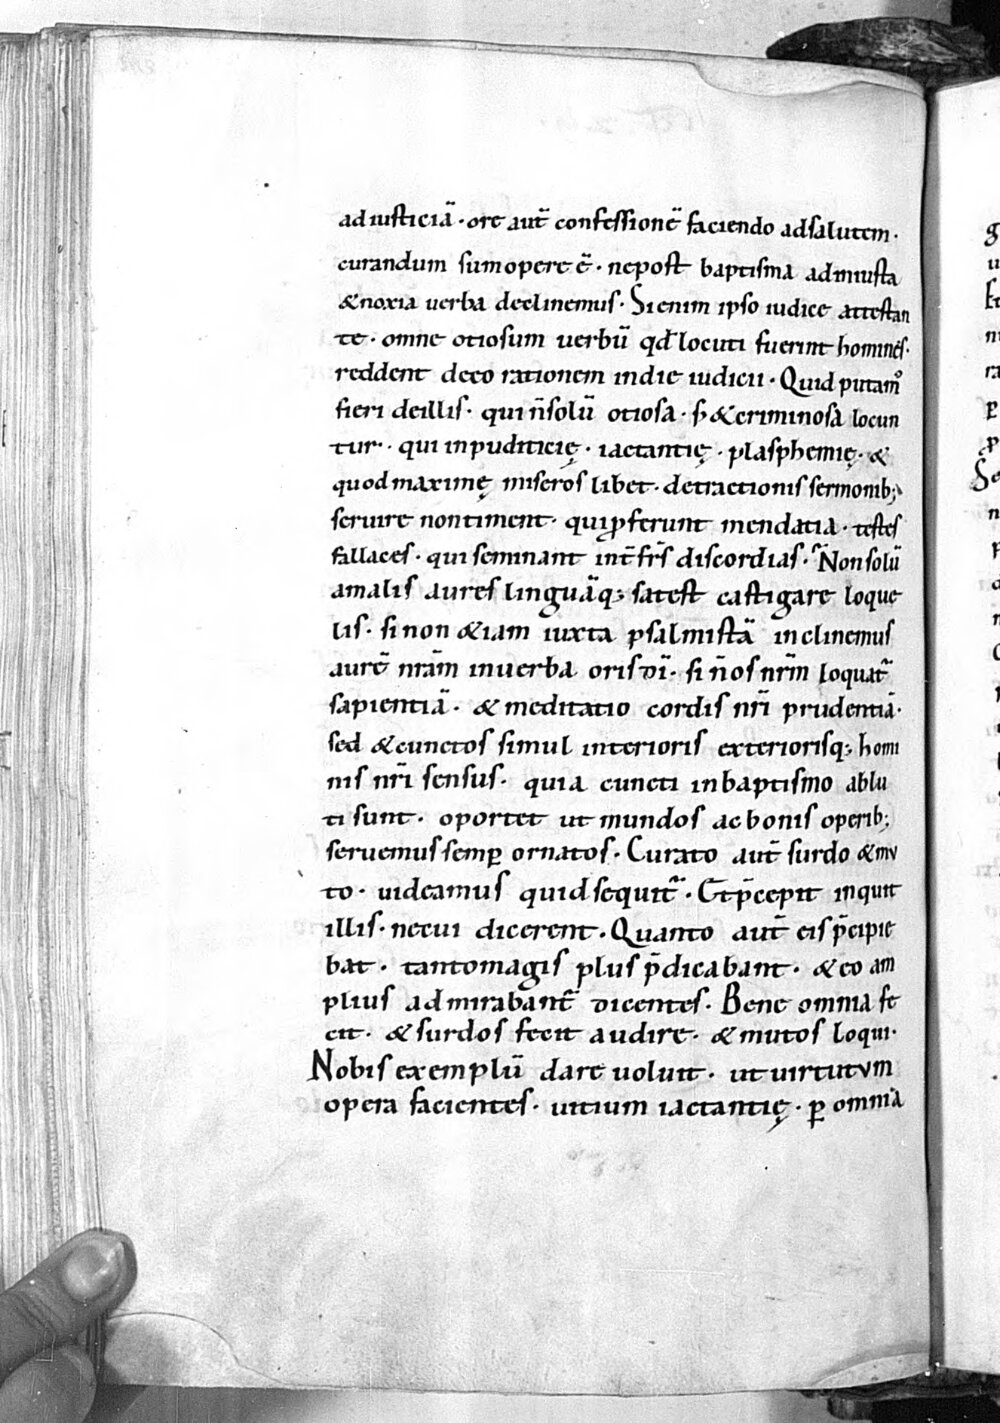 ad iusticiā · ore aut̄ confessionē faciendo ad salutem ·
curandum sumopere ē · ne post baptisma ad iniusta
& noxia uerba declinemus · Si enim ipso iudice attestan
te · omne otiosum uerbū qd̄ locuti fuerint homines ·
reddent de eo rationem in die iudicii · Quid putamꝰ
fieri de illis · qui n̄ solū otiosa · s; & criminosa locun
tur · qui inpuditicię · iactantię · plasphemię · &
quod maximę miseros libet · detractionis sermonib;
seruire non timent · qui ꝓferunt mendatia · testes
fallaces · qui seminant int̄ fr̄s discordias · Non solū
a malis aures linguāq; sat est castigare loque
lis · si non &iam iuxta psalmistā inclinemus
aurē nrām in uerba oris dī · si n̄ os nrm̄ loquat᷑
sapientiā · & meditatio cordis nrī prudentiā ·
sed & cunctos simul interioris exteriorisq; homi
nis nrī sensus · quia cuncti in baptismo ablu
ti sunt · oportet ut mundos ac bonis operib;
seruemus semꝑ ornatos · Curato aut̄ surdo & mu
to · uideamus quid sequit᷑ · Et p̄cepit inquit
illis · ne cui dicerent · Quanto aut̄ eis p̄cipie
bat · tanto magis plus p̄dicabant · & eo am
plius admirabant᷑ dicentes · Bene omnia fe
cit · & surdos fecit audire · & mutos loqui ·
Nobis exemplū dare uoluit · ut uirtutum
opera facientes · uitium iactantię · ꝑ omnia